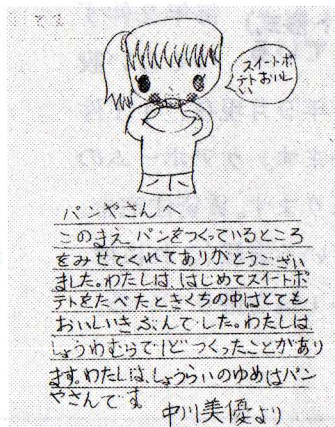 スイートポ
テトおいし
い
パンやさんへ
このまえ、パンをつくっているところ
をみせてくれてありがとうござい
ました。わたしは、はじめてスイートポ
テトをたべたときくちの中はとても
おいしいきぶんでした。わたしは、
しょうわむらで1どつくったことがあり
ます。わたしは、しょうらいのゆめはパン
やさんです。
中川美優より